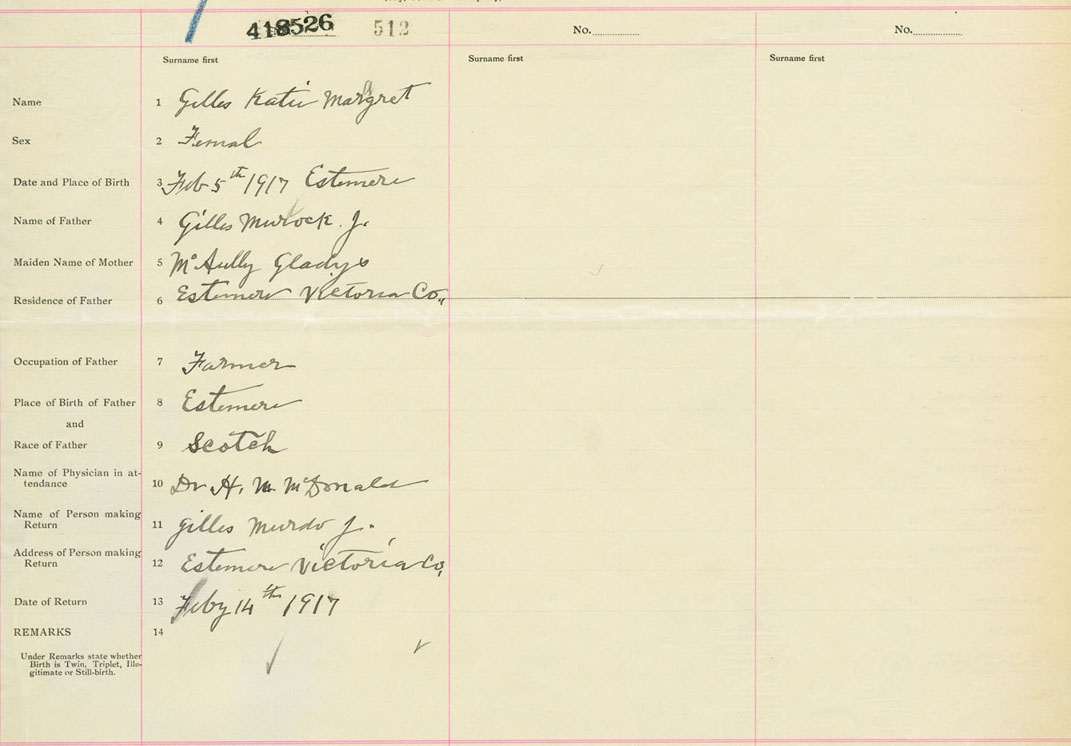 418526 512 No. No.
Surname first Surname first Surname first
Name 1 Gilles Katie Margret
Sex 2 Femal
Date and Place of Birth 3 Feb 5th 1917 Estmere
Name of Father 4 Gilles Murdock. J.
Maiden Name of Mother 5 McAully Gladys
Residence of Father 6 Estmere Victoria Co.,
Occupation of Father 7 Farmer
Place of Birth of Father 8 Estmere
and
Race of Father 9 Scotch
Name of Physician in at-
tendance 10 Dr H. M. McDonald
Name of Person making
Return 11 Gilles Murdo J.
Address of Person making
Return 12 Estmere Victoria Co,
Date of Return 13 Feby 14th 1917
REMARKS 14
Under Remarks state whether
Birth is Twin, Triplet, Ille-
gitimate or Still-birth.